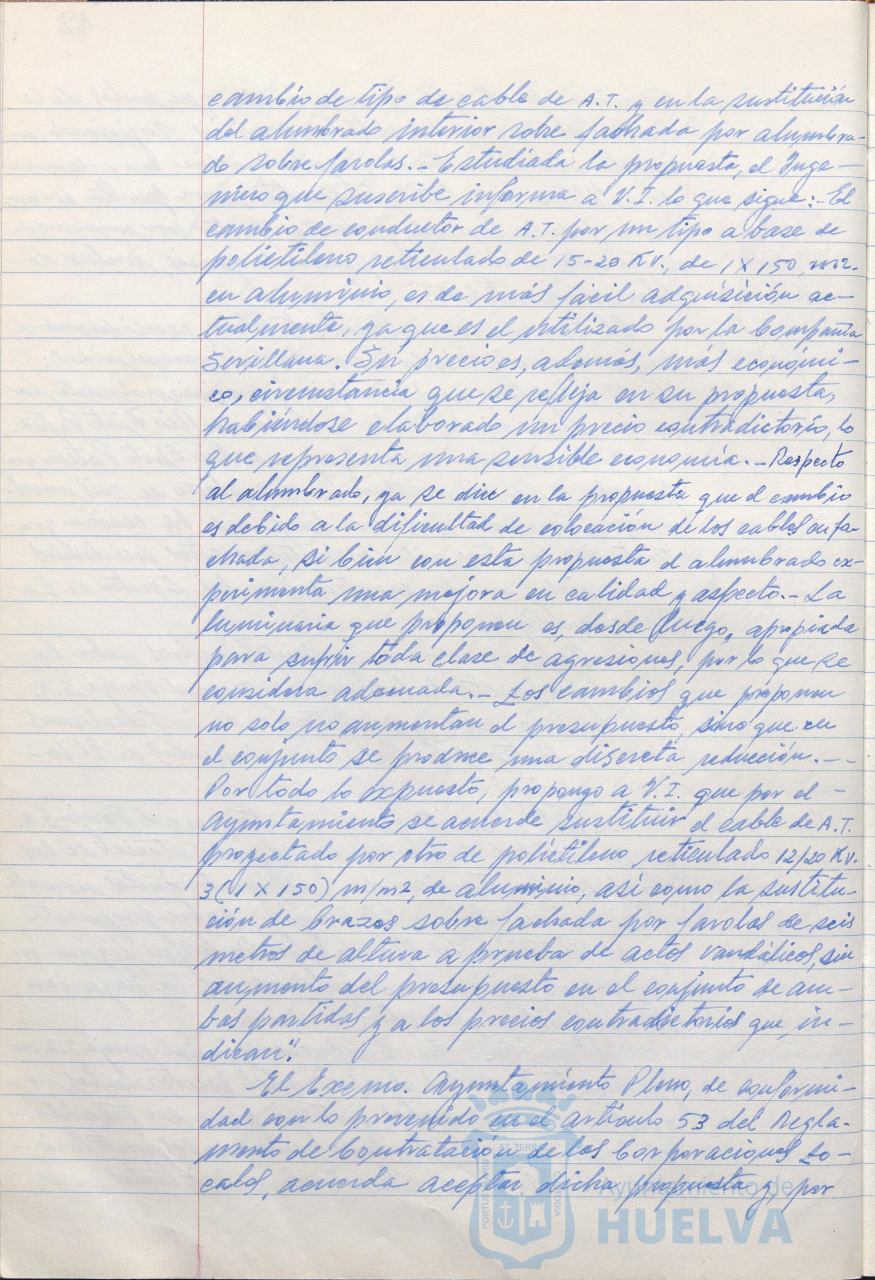 cambio de tipo de cable de A.T. y en la sustitución
del alumbrado interior sobre fachada por alumbra-
do sobre farolas.- Estudiada la propuesta, el Inge-
niero que suscribe informa a V.I. lo que sigue:- El
cambio de conductor de A.T. por un tipo a base de
polietileno reticulado de 15-20 KV., de 1 X 150, mm2.
en aluminio, es de más fácil adquisición ac-
tualmente, ya que es el utilizado por la Compañía
Sevillana. Su precio es, además, más económi-
co, circunstancia que se refleja en su propuesta,
habiéndose elaborado un precio contradictorio, lo
que representa una sensible economía.- Respecto
al alumbrado, ya se dice en la propuesta que el cambio
es debido a la dificultad de colocación de los cables en fa-
chada, si bien con esta propuesta el alumbrado ex-
perimenta una mejora en calidad y aspecto.- La
luminaria que proponen es, desde luego, apropiada
para sufrir toda clase de agresiones, por lo que se
considera adecuada.- Los cambios que proponen
no solo no aumentan el presupuesto, sino que en
el conjunto se produce una discreta reducción.--
Por todo lo expuesto, propongo a V.I. que por el -
Ayuntamiento se acuerde sustituir el cable de A.T.
proyectado por otro de polietileno reticulado 12/20 KV.
3(1 X 150) m/m2, de aluminio, así como la sustitu-
ción de brazos sobre fachada por farolas de seis
metros de altura a prueba de actos vandálicos, sin
aumento del presupuesto en el conjunto de am-
bas partidas y a los precios contradictorios que, in-
dican".
El Excmo. Ayuntamiento Pleno, de conformi-
dad con lo prevenido en el artículo 53 del Regla-
mento de Contratación de las Corporaciones Lo-
cales, acuerda aceptar dicha propuesta y, por
Ayuntamiento de
HUELVA